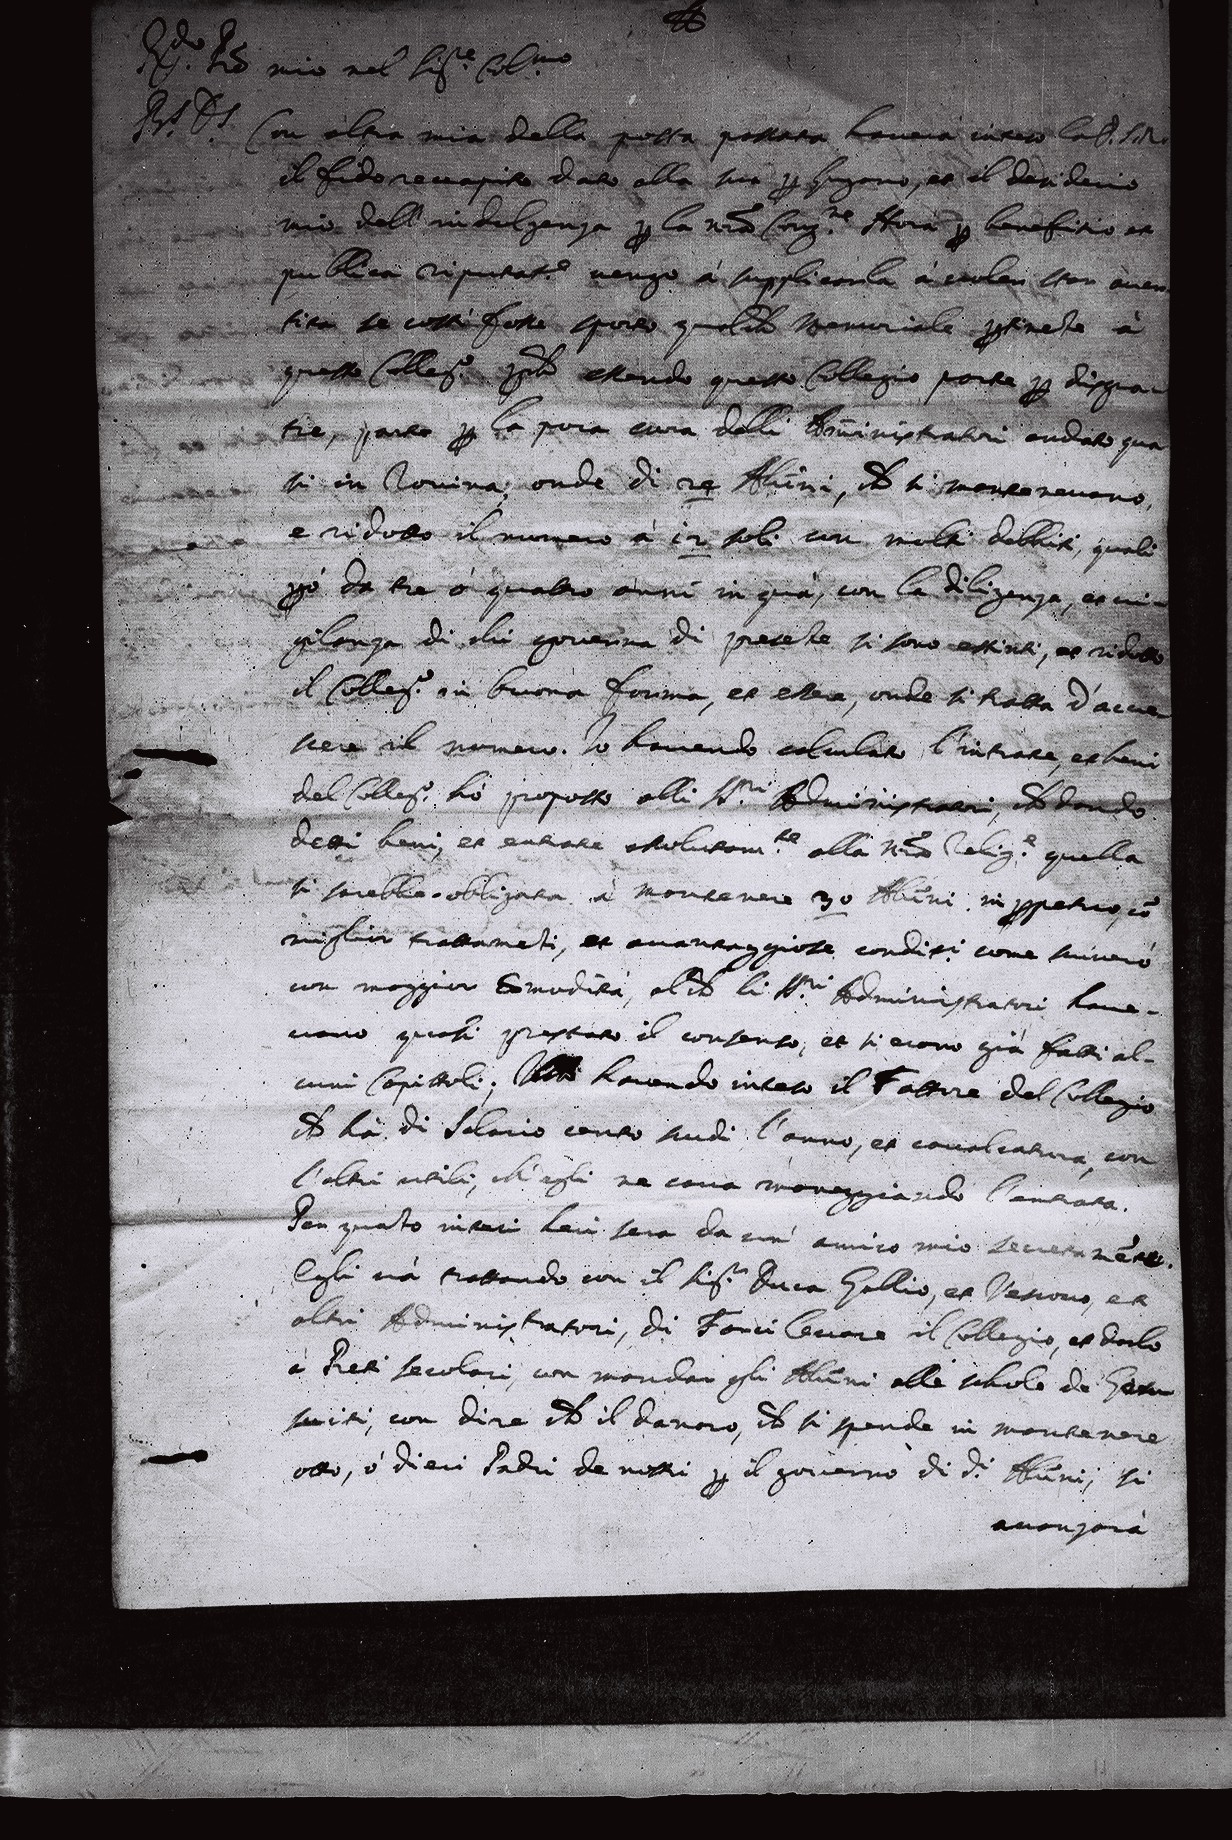 R.do P.re mio nel Sig.re Col.mo
Con altra mia della posta passata haverà inteso la P. S. R.
il fido reccapito dato alla sua per Lugano, et il desiderio
mio dell'indulgenza per la nrã Cong.ne Hora per benefitio et
publica riputat.e vengo à supplicarla à voler star aver-
tita se costì fosse sporto qualche memoriale ptinete à
questo Colleg.o pche essendo questo Collegio parte per disgra-
tie, parte per la poca cura delli Aministratori andato qua
si in Rovina; onde di 24 Alũni, che si mantenevano,
e ridotto il numero à 12 soli con molti debbiti, quali
pò da tre ò quattro anni in quà, con la diligenza, et vi-
gilanza di chi governa di presete si sono estinti, et ridotto
il Colleg.o in buona forma, et essere, onde si tratta d'accre-
scere il numero. Io havendo calculato l'intrate, et beni
del Colleg.o hò proposto alli SS.ri Administratori, che dando
detti beni, et entrate assolutam.te alla nrã Relig.e quella
si sarebbe obbligata à mantenere 30 Alũni in ppetuo, cõ
miglior trattameti, et avantaggiose conditi come
con maggior cõmodità, al che li SS.ri Administratori have-
vano quasi prestato il consenso, et si erano già fatti al-
cuni Capittoli; havendo inteso il Fattore del Collegio
che hà di Salario cento scudi l'anno, et cavalcatura, con
l'altri utili, ch'egli ne cava maneggiando l'entrata.
Per quato intesi heri sera da un' amico mio secretamẽte.
Egli và trattando con il Sig.r Duca Gallio, et Vescovo, et
altri Administratori, di Farci levare il Collegio, et darlo
à Preti secolari, con mandar gli Alũni alle schole de Gesu
uiti, con dire che il danaro, che si spende in mantenere
otto, ò dieci Padri de nostri per il governo di d.i Alũni, si
avanzarà